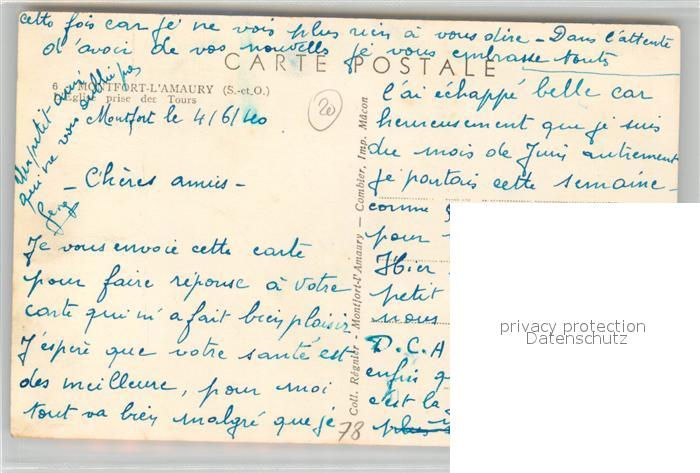 cette fois car je ne vois plus rien à vous dire - Dans l'attente
d'avoir de vos nouvelles je vous embrasse touts
CARTE POSTALE
6 - MONTFORT-L'AMAURY (S.-et-O.)
Eglise prise des Tours
Montfort le 4/6/40
20
Un petit ami
qui ne vous oublie pas
- Chères amies -
Je vous envoie cette carte
pour faire réponse à votre
carte qui m'a fait bien plaisir
J'espère que votre santé est
des meilleure, pour moi
tout va bien malgré que je
Coll. Régnier - Montfort-l'Amaury - Combier, Imp. Mâcon
78
l'ai échappé belle car
heureusement que je suis
du mois de Juin autrement
je partais cette semaine -
comme
pour
Hier
petit
nous
D.C.A
enfin
c'est la
plus
privacy protection
Datenschutz